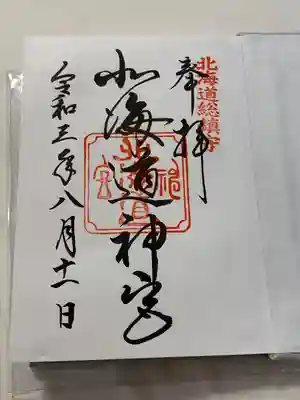 北海道総鎮守
奉拝
北海道神宮
令和三年八月十一日